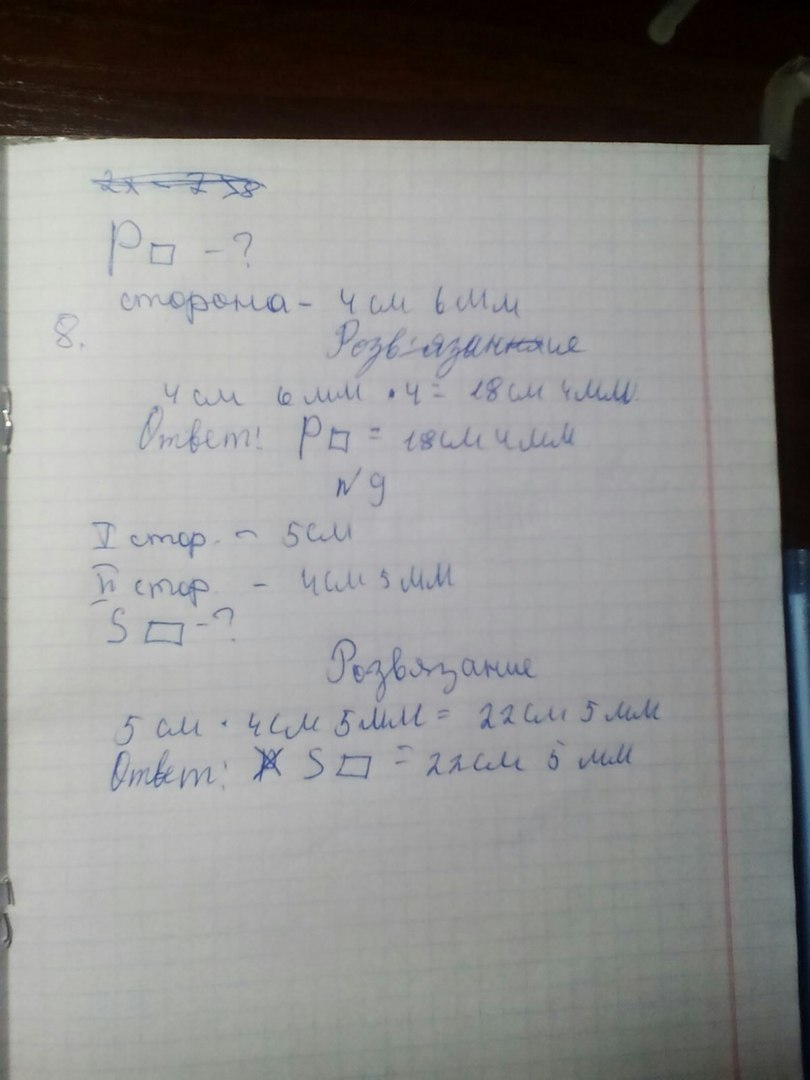 2x - 7 38
P□ - ?
сторона - 4 см 6 мм
8.
Розв'язание
4 см 6 мм • 4 = 18 см 4 мм
Ответ: P□ = 18 см 4 мм
N 9
I стор. - 5 см
II стор - 4 см 5 мм
S▭ - ?
Розвязание
5 см • 4 см 5 мм = 22 см 5 мм
Ответ: S▭ = 22 см 5 мм